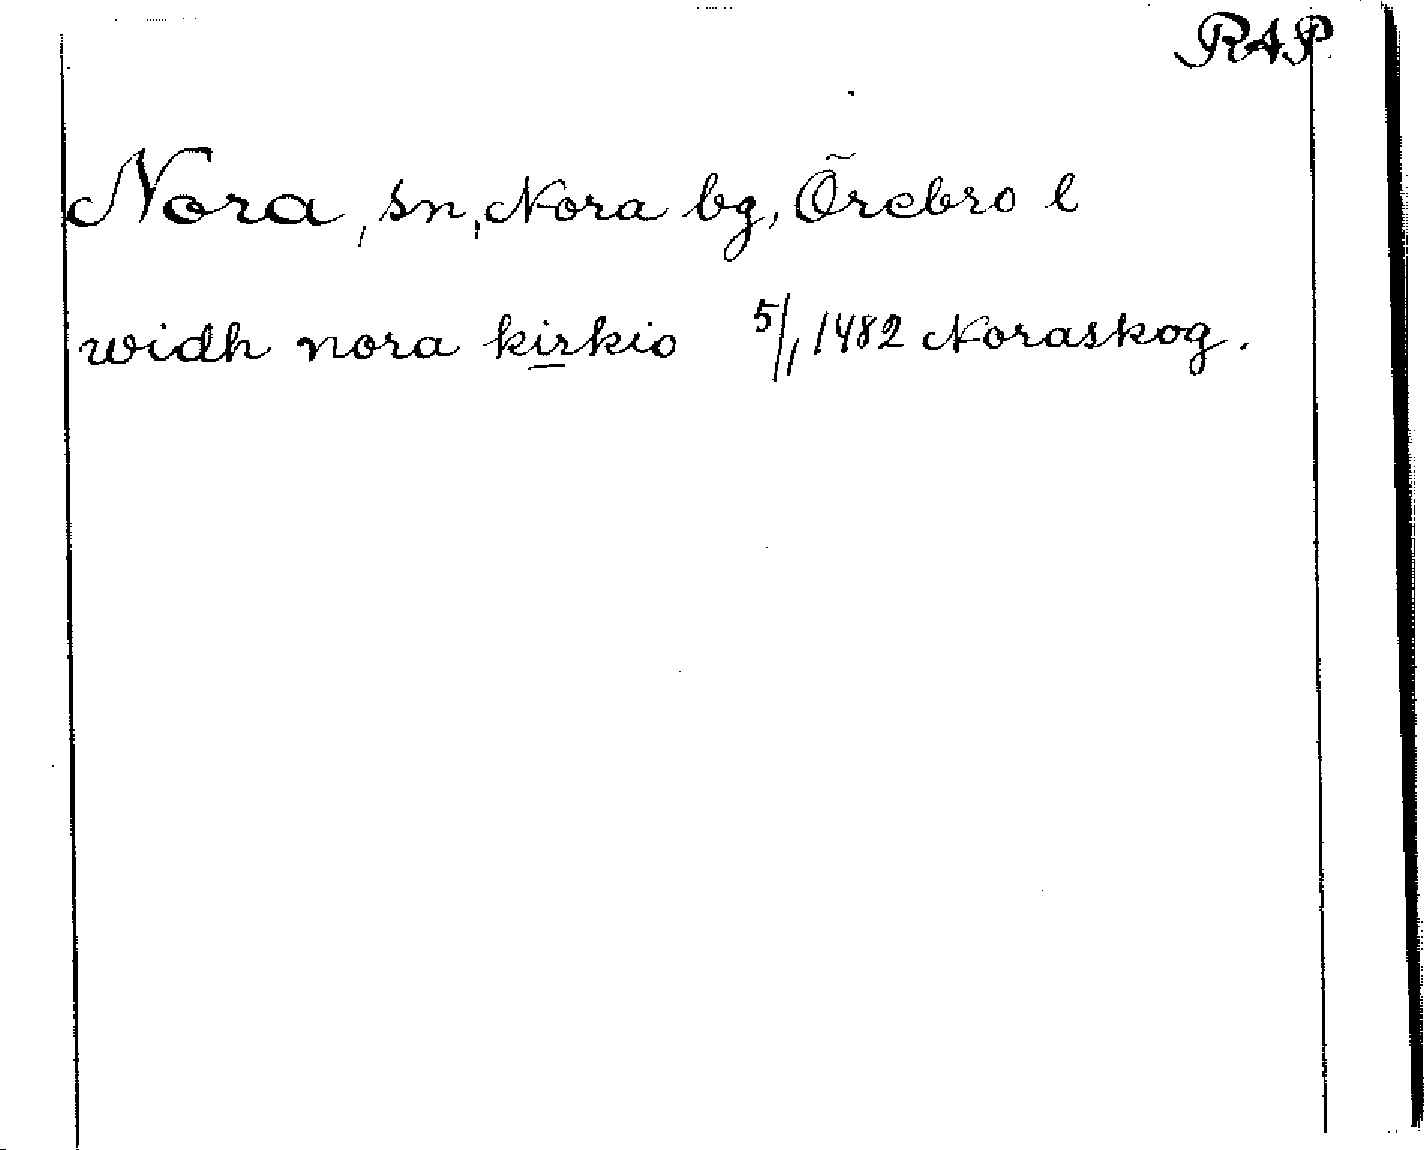 RAP
Nora, sn, Nora bg, Örebro l
widh nora kirkio 5/1 1482 Noraskog.